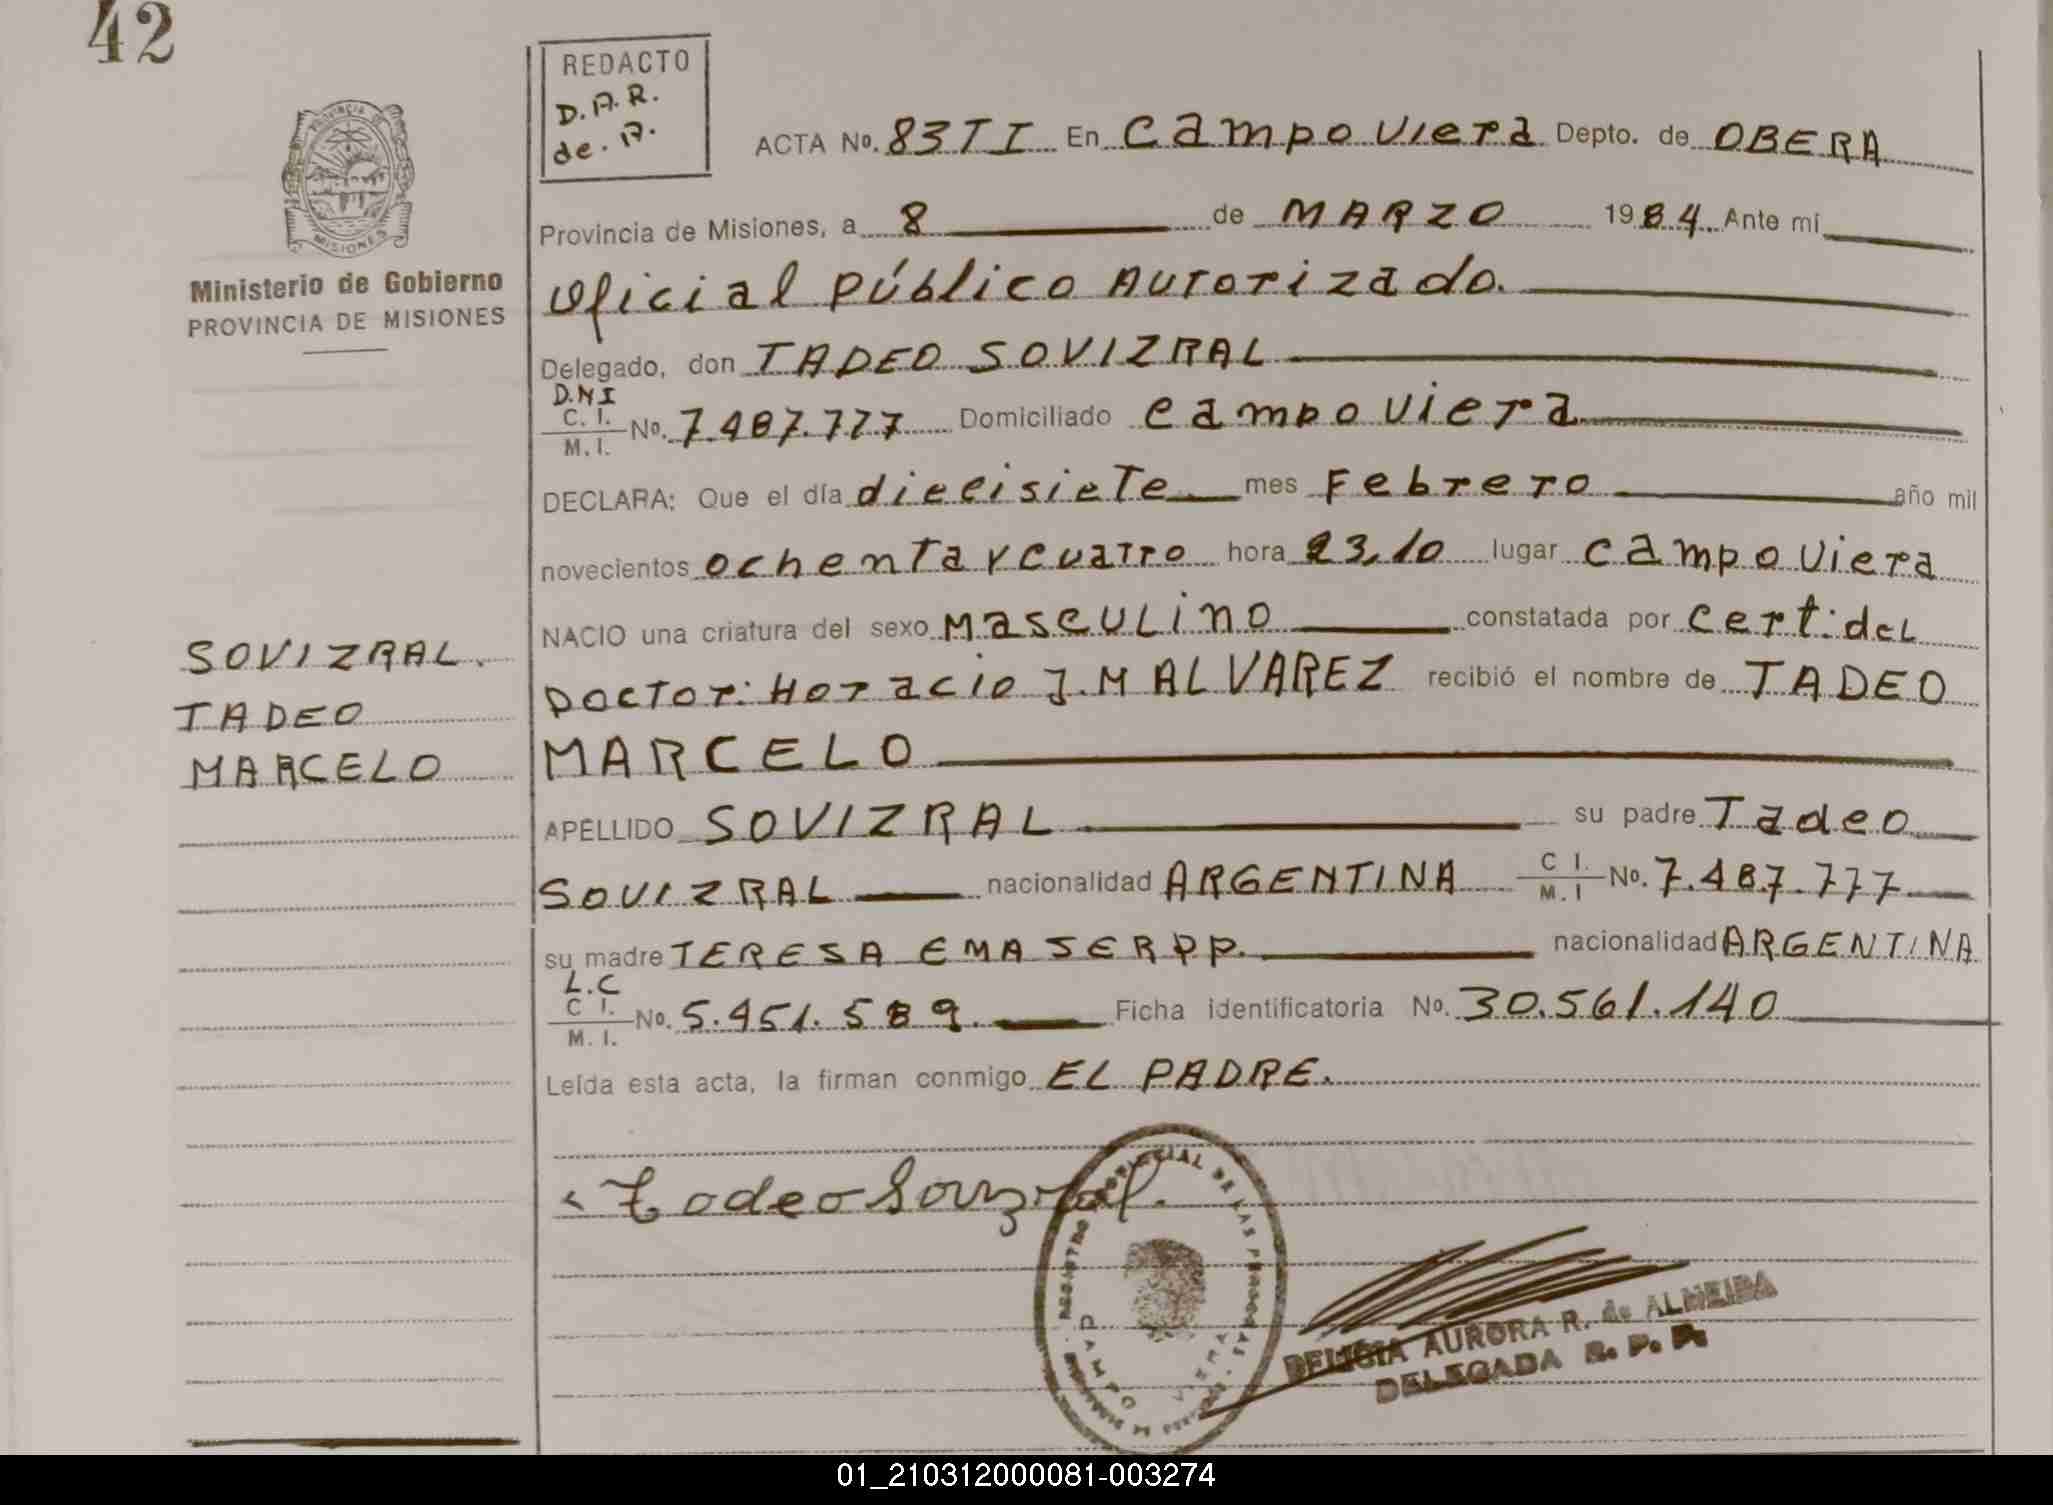 42
REDACTO
D.A.R.
de. A.
PROVINCIA DE
MISIONES
Ministerio de Gobierno
PROVINCIA DE MISIONES
ACTA No. 83 T I En Campo Viera Depto. de OBERA
Provincia de Misiones, a 8 de MARZO 1984. Ante mí
Oficial Público Autorizado.
Delegado, don TADEO SOVIZRAL
D.N.I
C. I.
M. I. No. 7.487.777 Domiciliado Campo Viera
DECLARA: Que el día diecisiete mes Febrero año mil
novecientos ochenta y cuatro hora 23,10 lugar Campo Viera
NACIO una criatura del sexo Masculino constatada por Cert: del
Doctor: Horacio J. M ALVAREZ recibió el nombre de TADEO
MARCELO
APELLIDO SOVIZRAL su padre Tadeo
SOVIZRAL nacionalidad ARGENTINA C I. M. I No. 7.487.777
su madre TERESA EMA SERPP. nacionalidad ARGENTINA
L.C
C I.
M. I. No. 5.451.589. Ficha identificatoria No. 30.561.140
Leída esta acta, la firman conmigo EL PADRE.
SOVIZRAL.
TADEO
MARCELO
Tadeo Sovizral.
REGISTRO PROVINCIAL DE LAS PERSONAS
CAMPO VIERA
DELICIA AURORA R. de ALMEIDA
DELEGADA R. P. P.
01_210312000081-003274